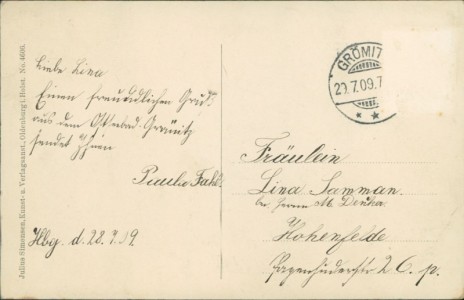 Liebe Lina
Einen freundlichen Gruß
aus dem Ostseebad Grömitz
sendet Ihnen
Paula Fahl
Hbg. d. 28.7.09.
GRÖMIT
29.7.09.7
Fräulein
Lina Samman.
bei Herrn M. Denker.
Hohenfelde
26. p.
Julius Simonsen, Kunst- u. Verlagsanst., Oldenburg i. Holst. No. 4600.